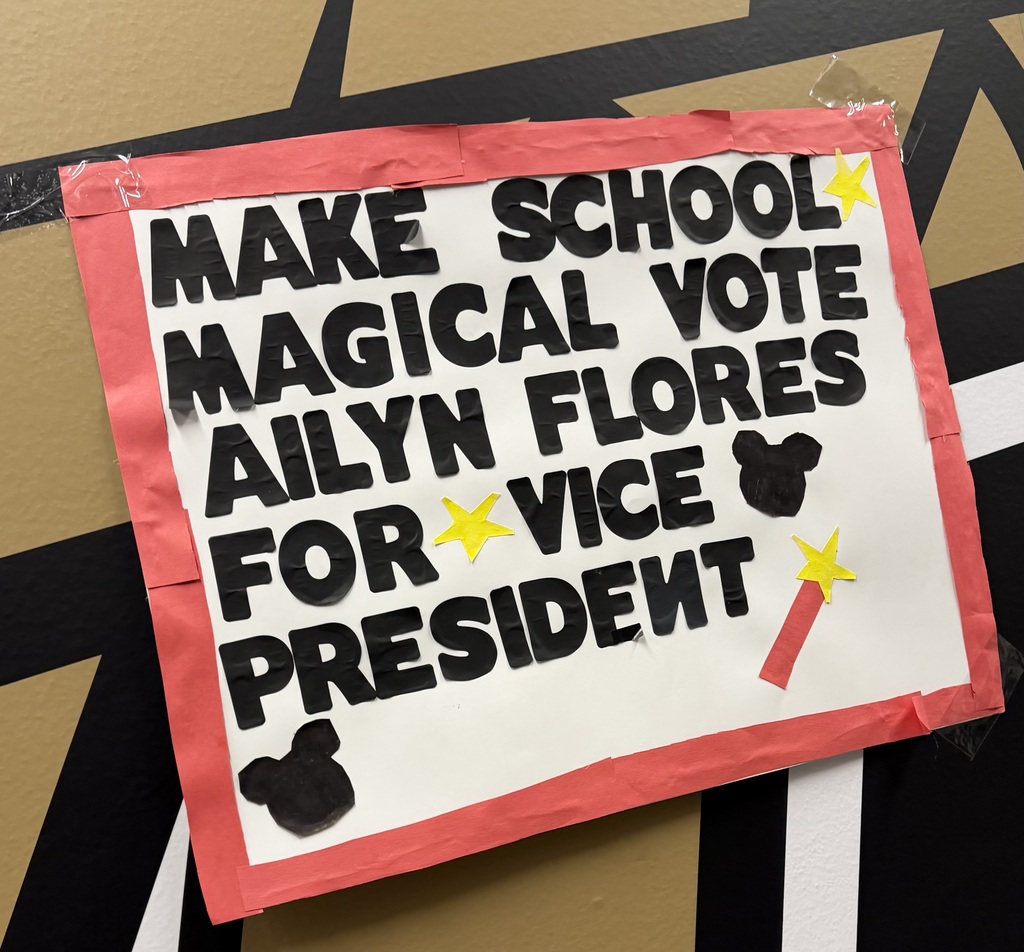 MAKE SCHOOL
MAGICAL VOTE
AILYN FLORES
FOR VICE
PRESIDEИT